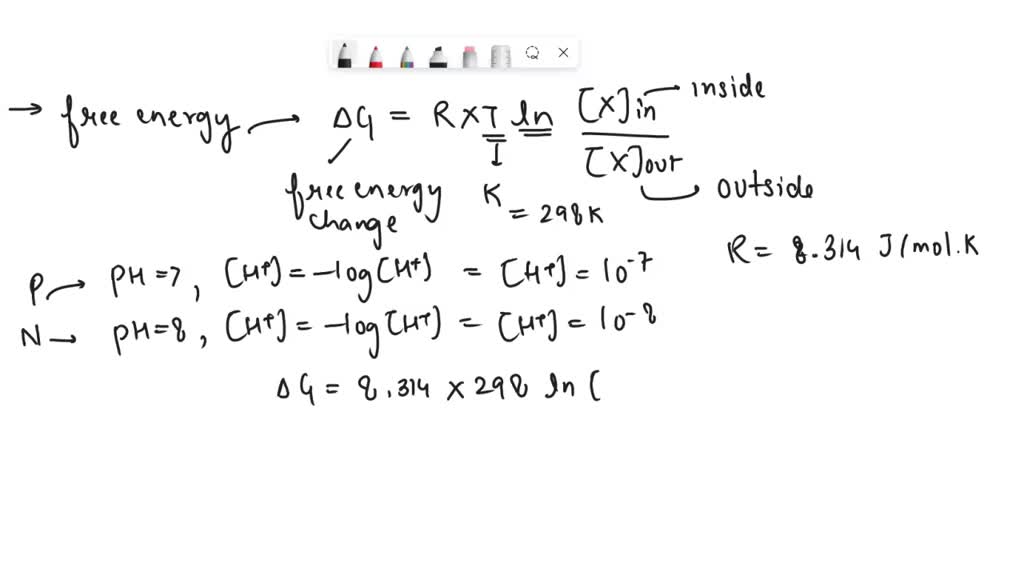 → free energy → ΔG = RXT ln [X]in / [X]out → inside
outside
free energy change
K = 298K
R = 8.314 J/mol.K
P → PH=7, [H+] = -log[H+] = [H+] = 10-7
N → PH=8, [H+] = -log[H+] = [H+] = 10-8
ΔG = 8.314 × 298 ln (